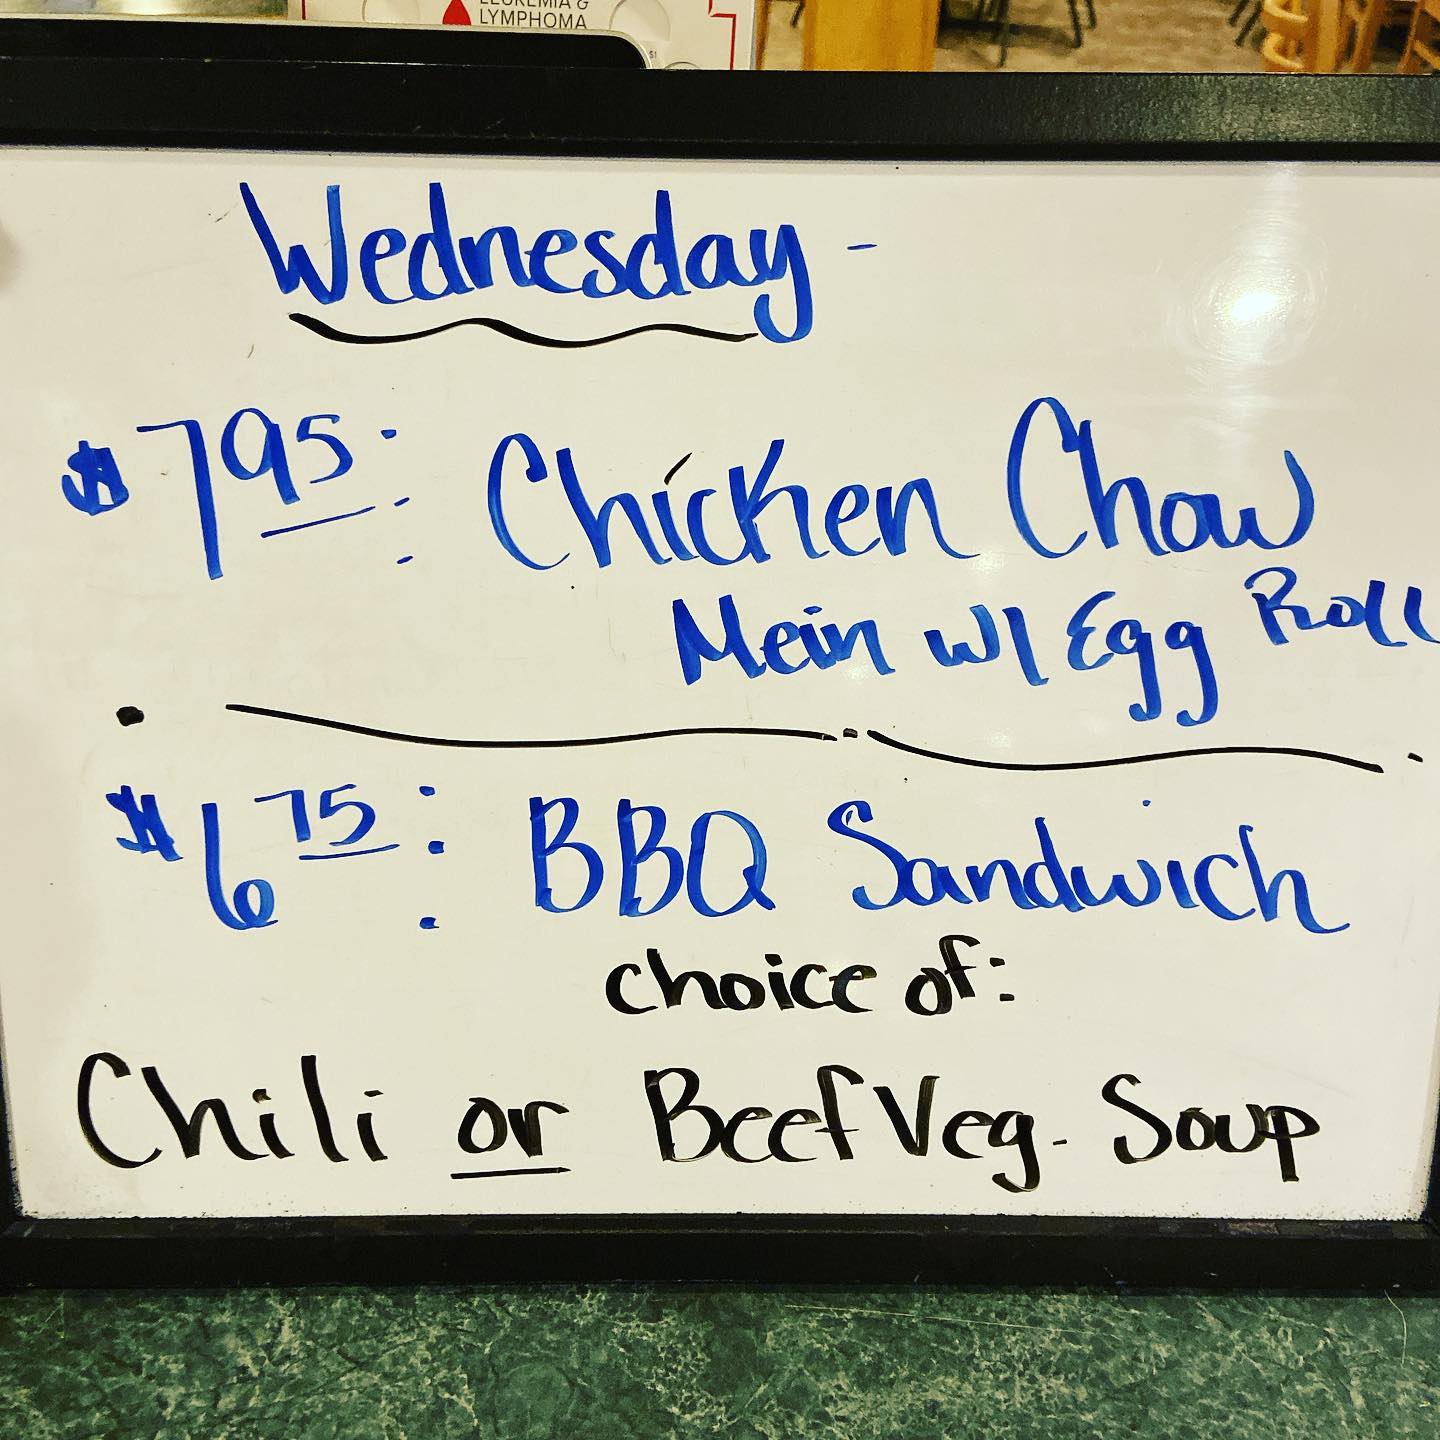 LEUKEMIA &
LYMPHOMA
$1
Wednesday -
$7 95: Chicken Chow
Mein w/ Egg Roll
$6 75: BBQ Sandwich
choice of:
Chili or Beef Veg. Soup